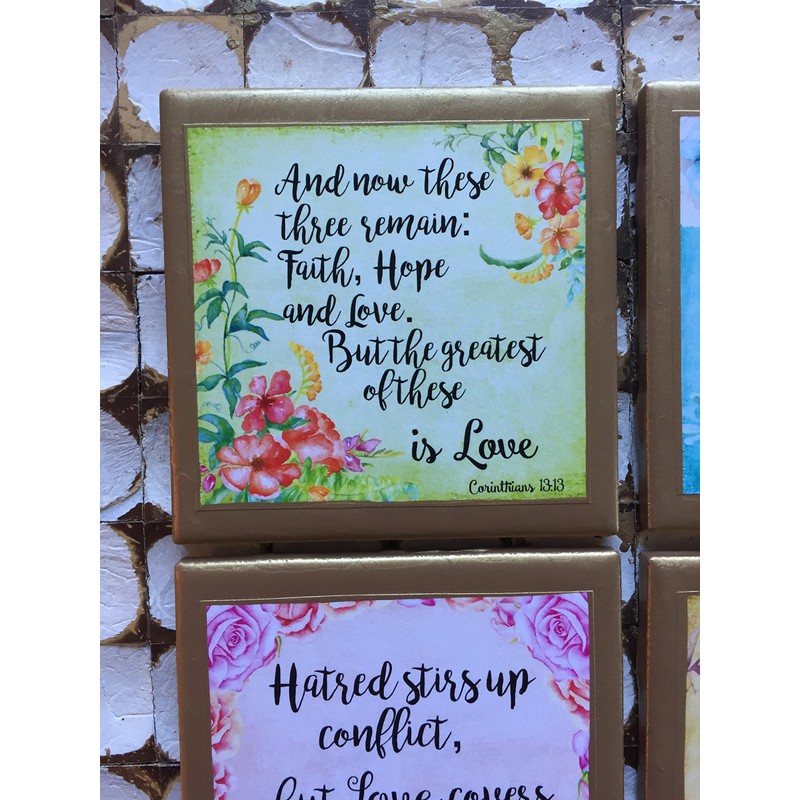 And now these
three remain:
Faith, Hope
and Love.
But the greatest
of these
is Love
Corinthians 13:13
Hatred stirs up
conflict,
but Love covers